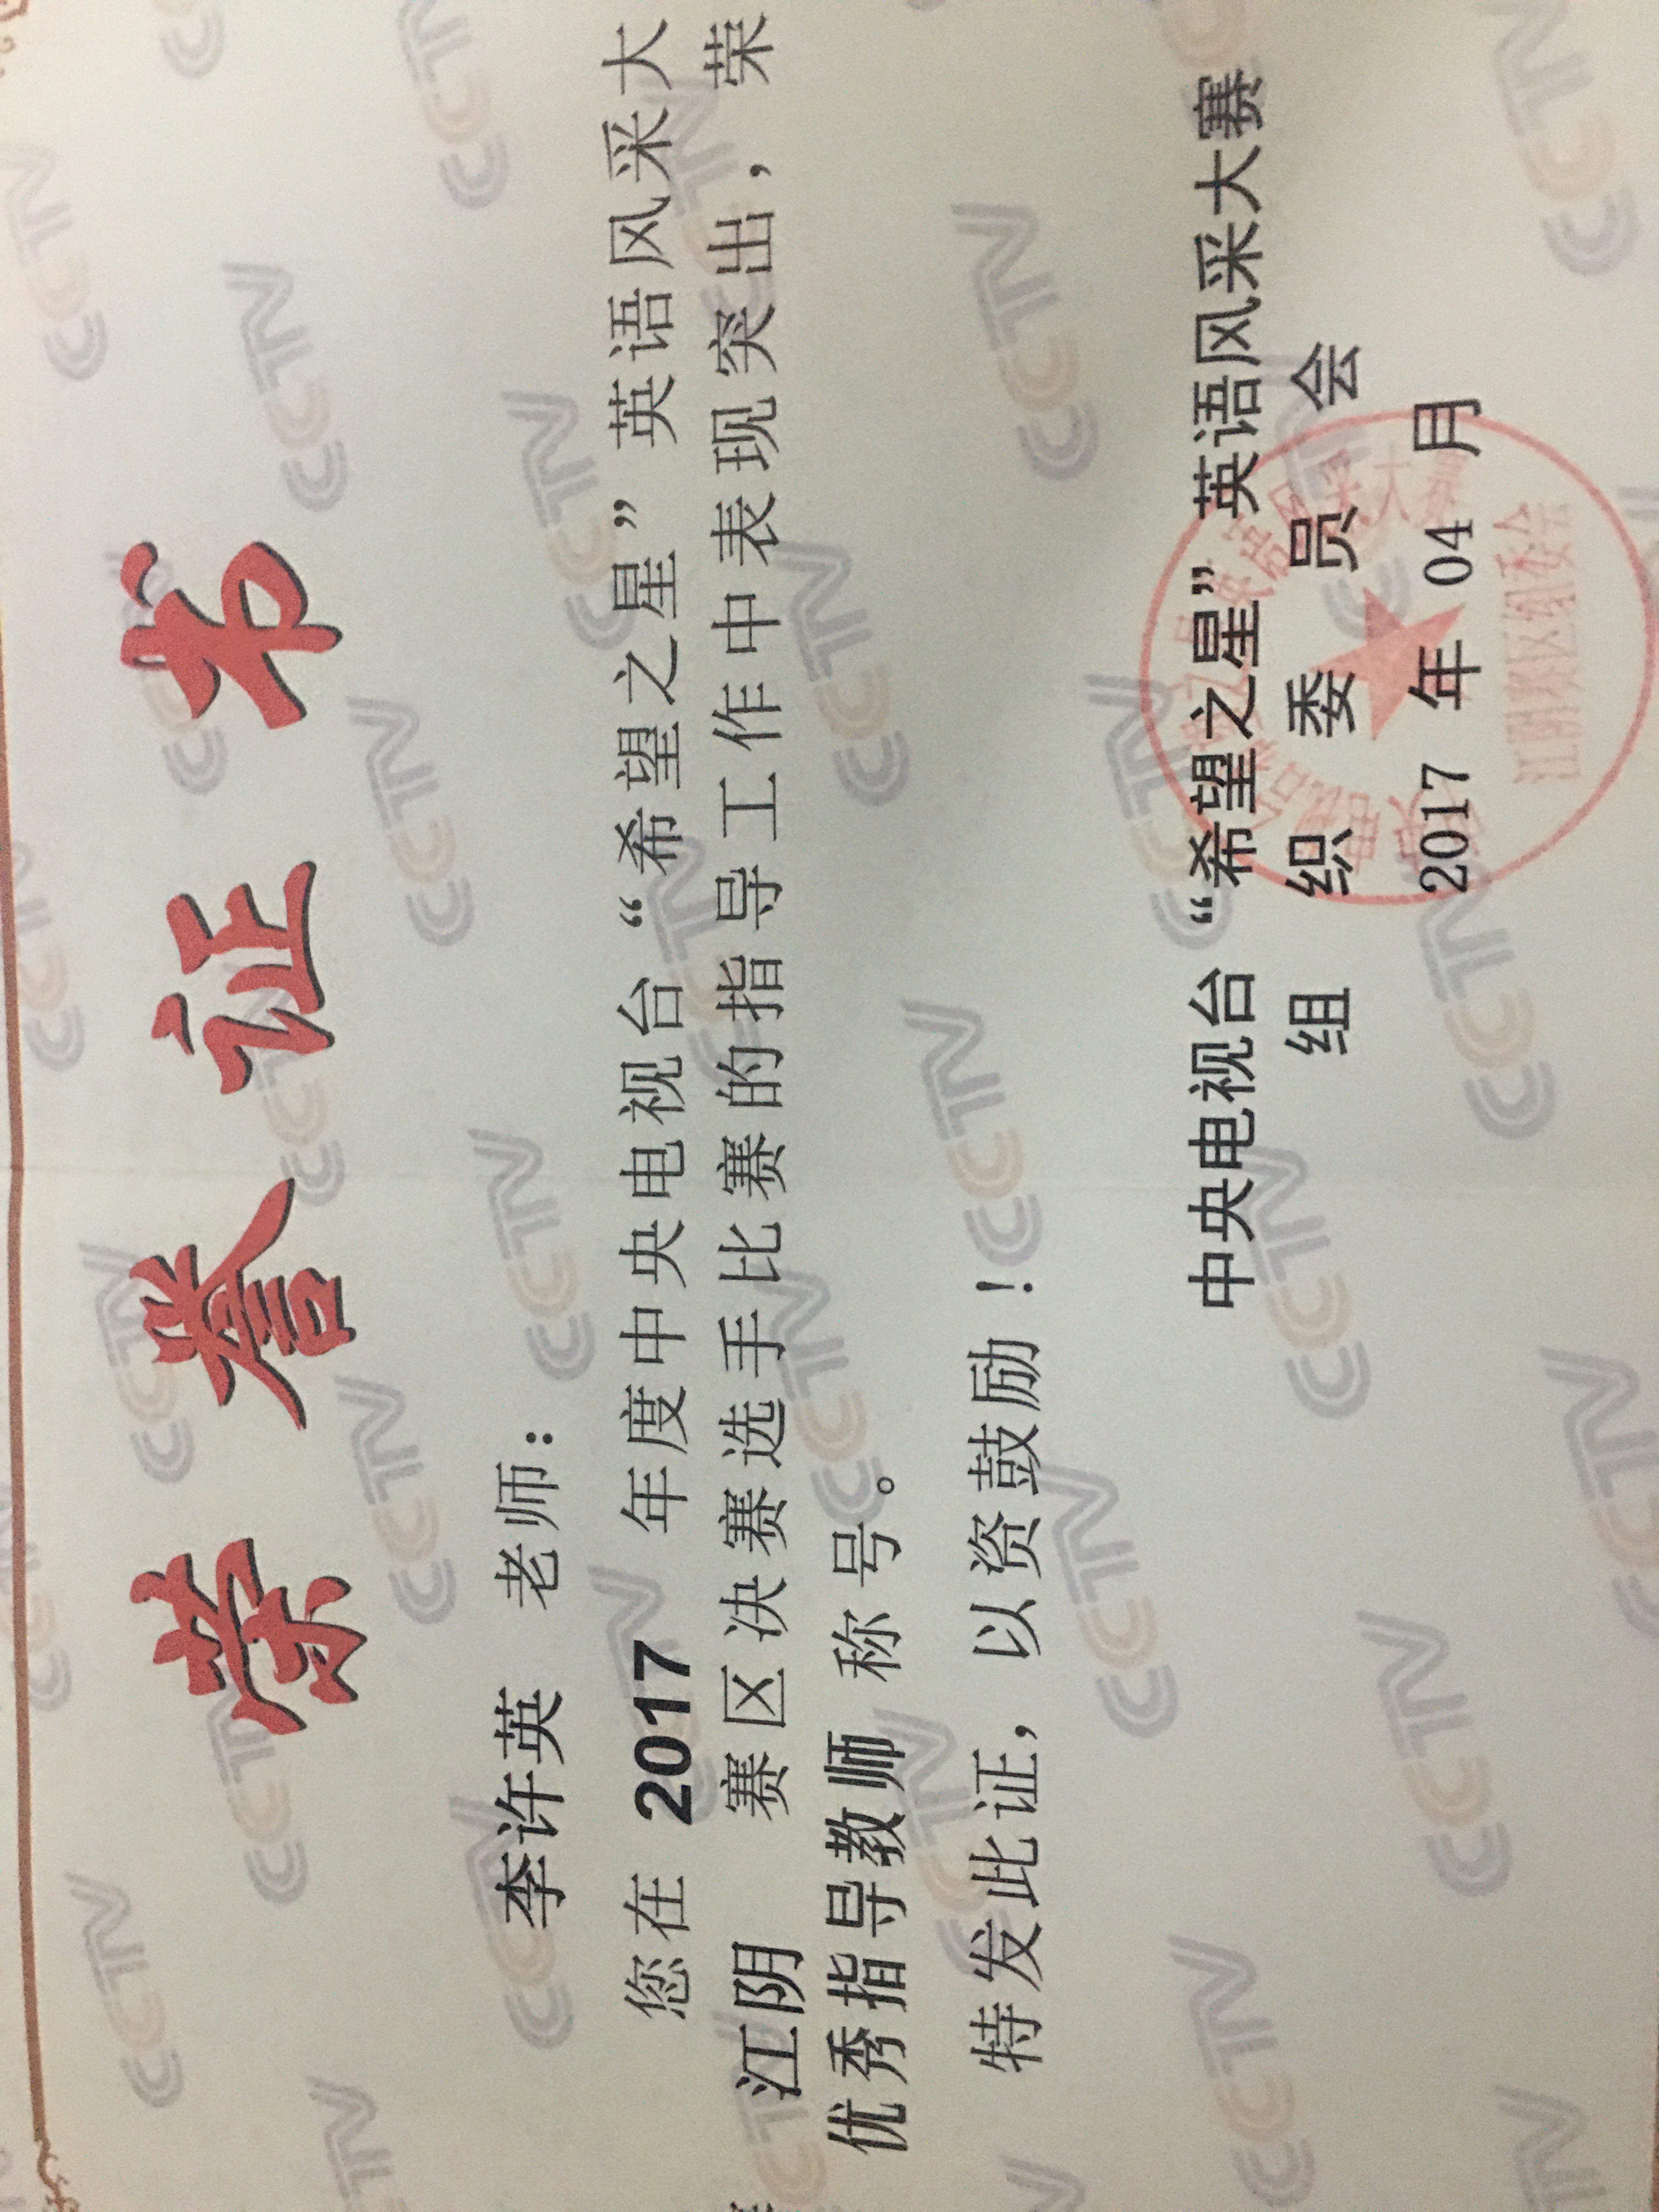 荣誉证书
李许英 老师：
您在 2017 年度中央电视台“希望之星”英语风采大
江阴 赛区决赛选手比赛的指导工作中表现突出，荣
优秀指导教师 称号。
特发此证，以资鼓励！
中央电视台“希望之星”英语风采大赛
组织委员会
2017 年 04 月
江阴赛区组委会
CCTV